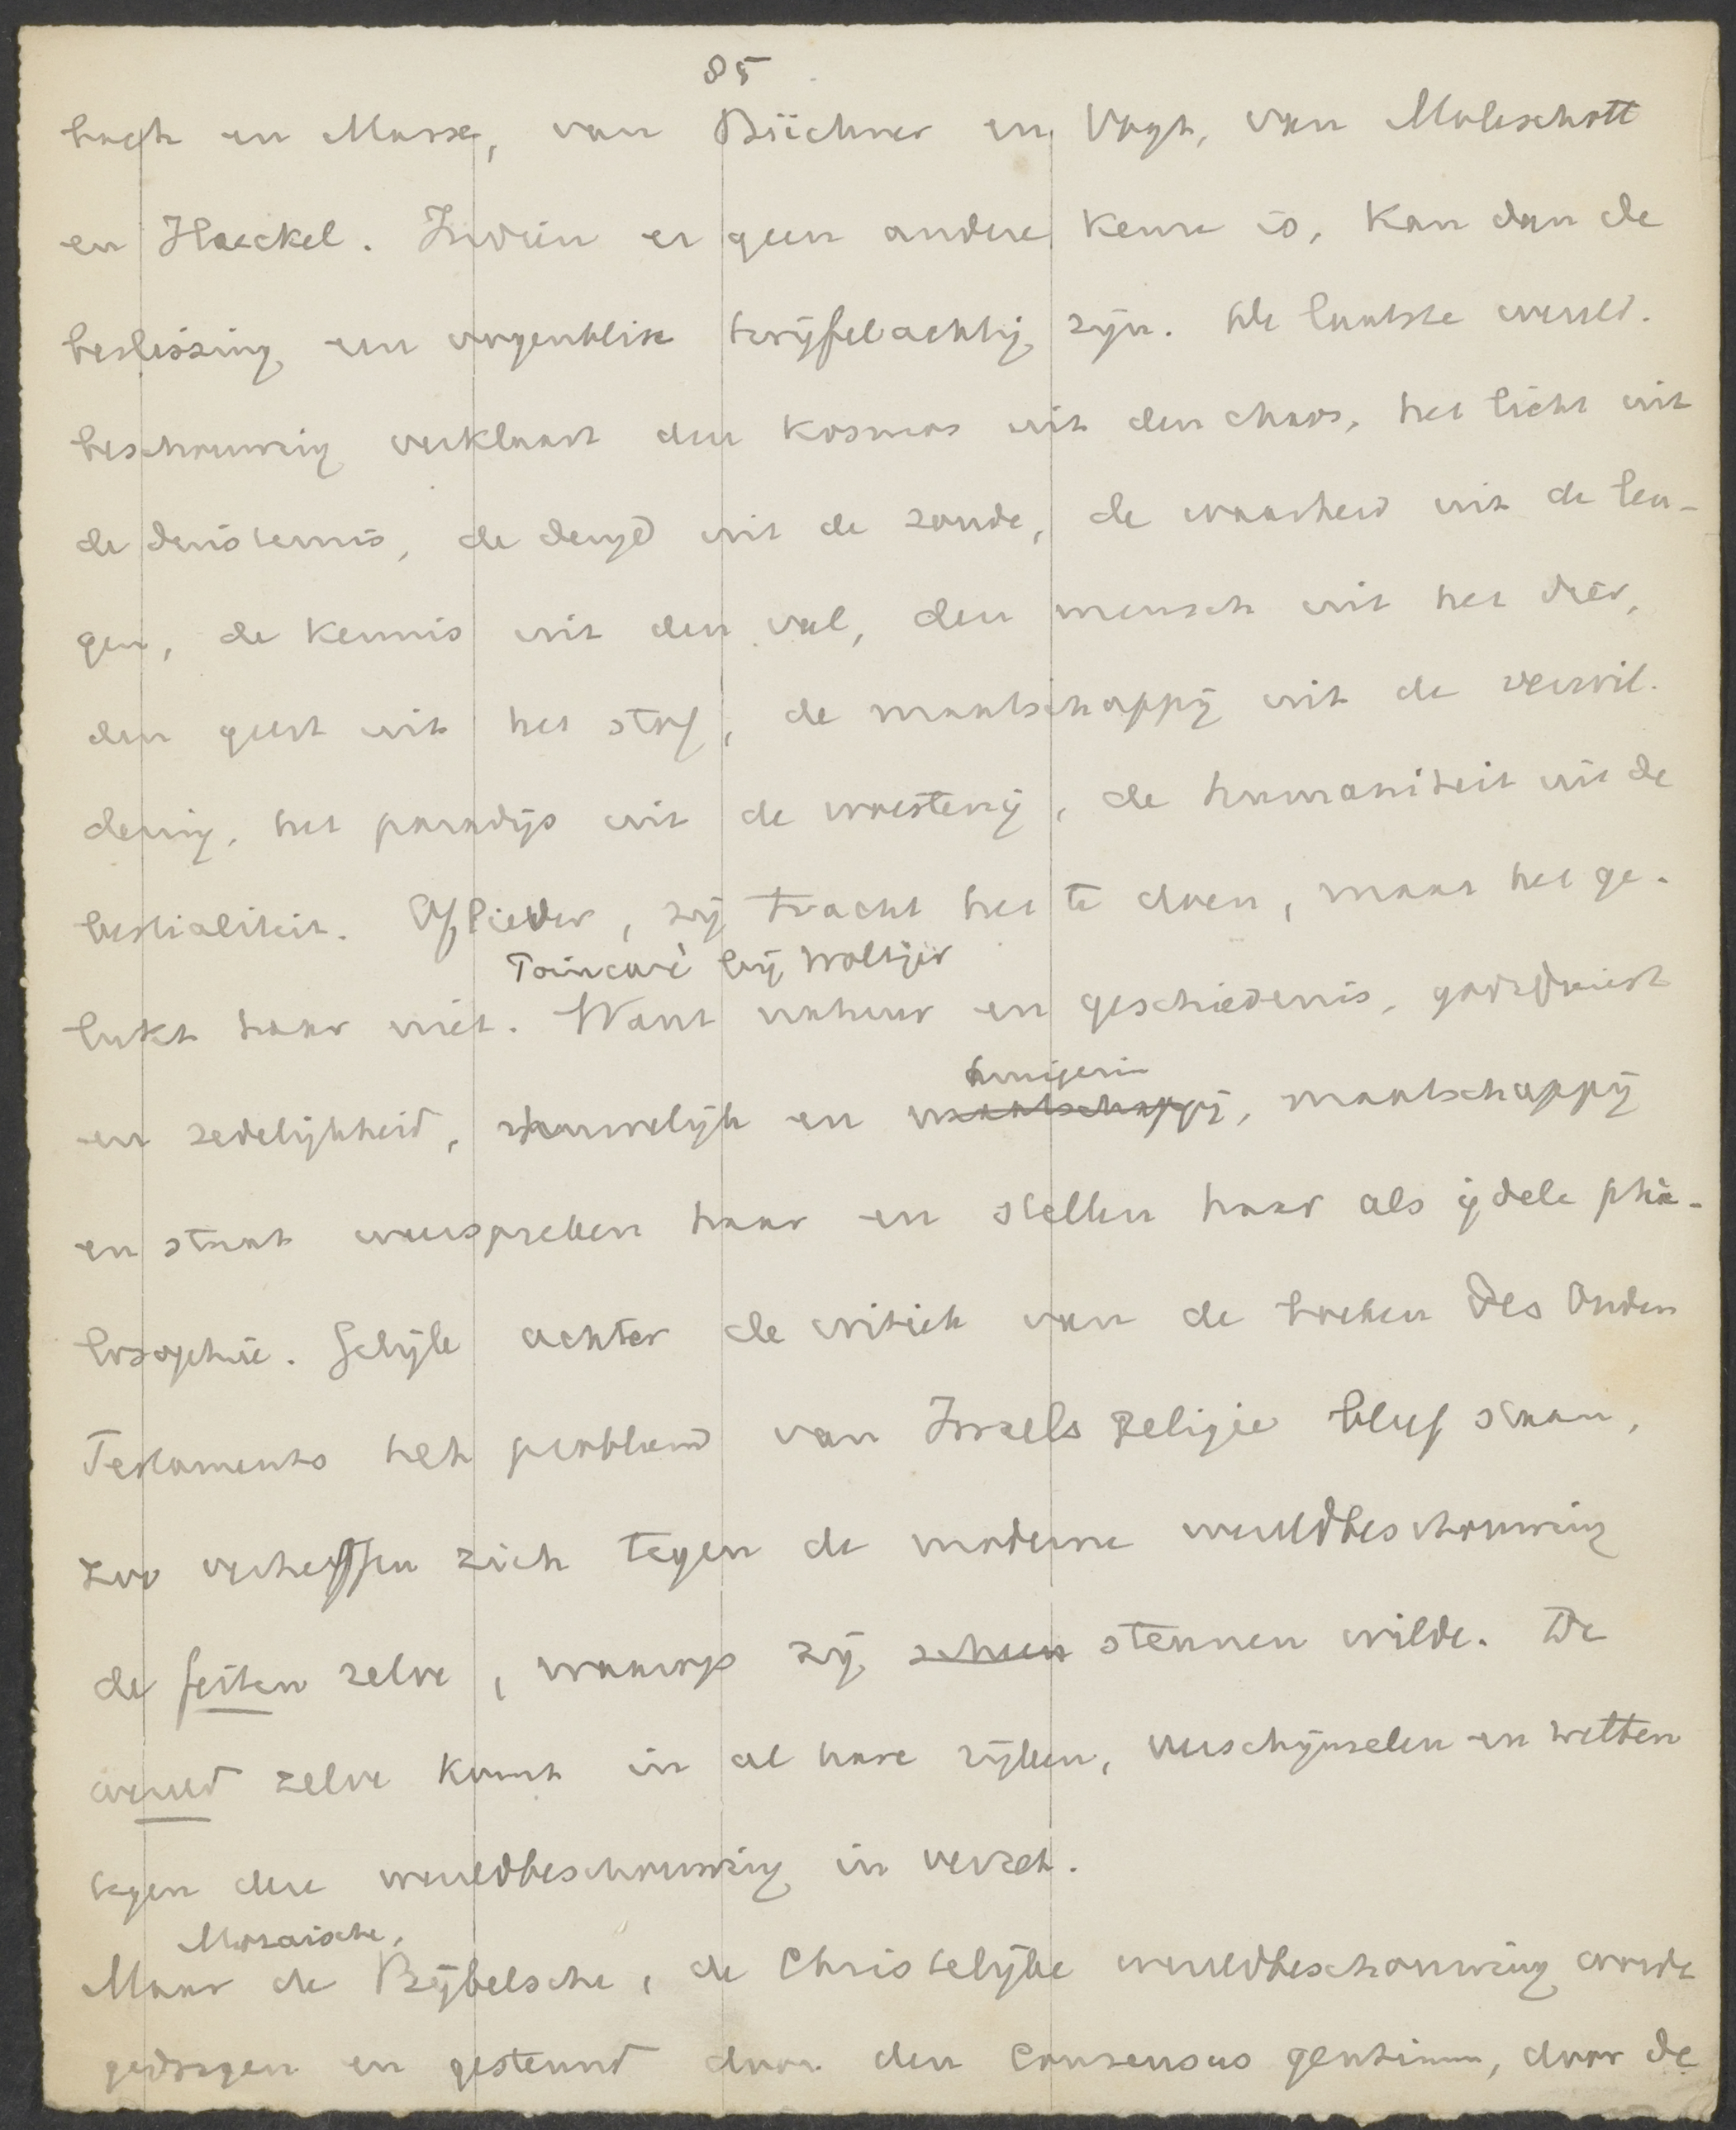 85
bach en Marx, van Büchner en Vogt, van Moleschott
en Haeckel. Indien er geen andere keuze is, kan dan de
beslissing een oogenblik twijfelachtig zijn. De laatste wereld-
beschouwing verklaart den kosmos uit den chaos, het licht uit
de duisternis, de deugd uit de zonde, de waarheid uit de leu-
gen, de kennis uit den val, den mensch uit het dier,
den geest uit het stof, de maatschappij uit de verwil-
dering, het paradijs uit de woestenij, de humaniteit uit de
bestialiteit. Of liever, zij tracht het te doen, maar het ge-
Poincaré bij Woltjer
lukt haar niet. Want natuur en geschiedenis, godsdienst
huisgezin
en zedelijkheid, huwelijk en maatschappij, maatschappij
en staat weerspreken haar en stellen haar als ijdele phi-
losophie. Gelijk achter de critiek van de boeken des Ouden
Testaments het probleem van Israels Religie bleef staan,
zoo verheffen zich tegen de moderne wereldbeschouwing
de feiten zelve, waarop zij steunen wilde. De
wereld zelve komt in al hare rijken, verschijnselen en wetten
tegen deze wereldbeschouwing in verzet.
Mozaische,
Maar de Bijbelsche, de Christelijke wereldbeschouwing wordt
gedragen en gesteund door den consensus gentium, door de